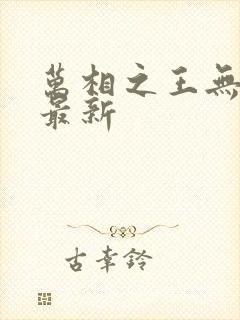 萬相之王無
最新
古幸鈴